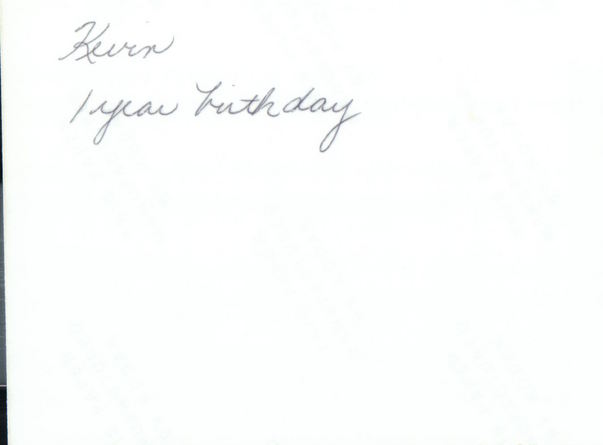 Kevin
1 year birthday